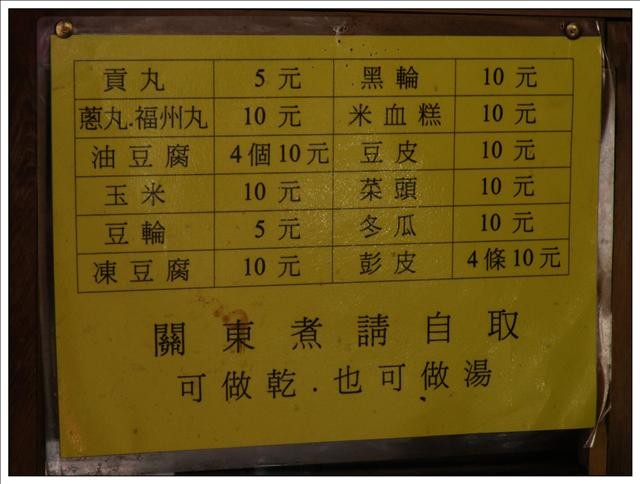 貢丸 5元 黑輪 10元
蔥丸.福州丸 10元 米血糕 10元
油豆腐 4個10元 豆皮 10元
玉米 10元 菜頭 10元
豆輪 5元 冬瓜 10元
凍豆腐 10元 彭皮 4條10元
關東煮請自取
可做乾.也可做湯